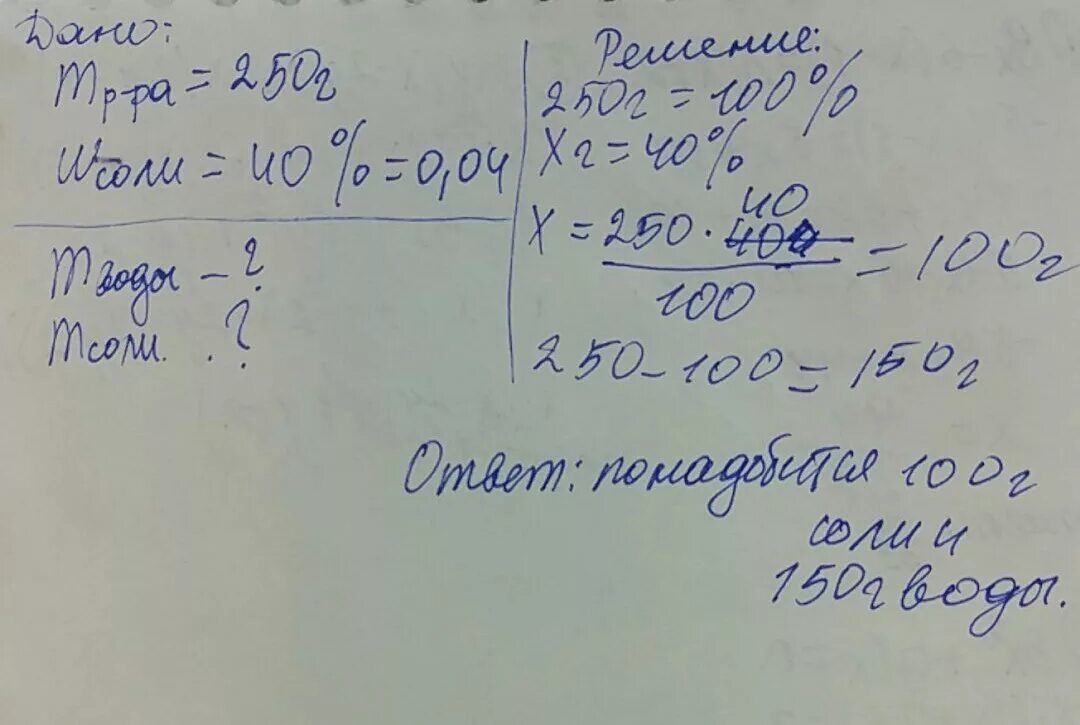 Дано:
mр-ра = 250г
wсоли = 40% = 0,04
mводы - ?
mсоли. . ?
Решение:
250г = 100%
Xг = 40%
40
X = 250 · 400 = 100г
100
250 - 100 = 150г
Ответ: понадобится 100г
соли и
150г воды.